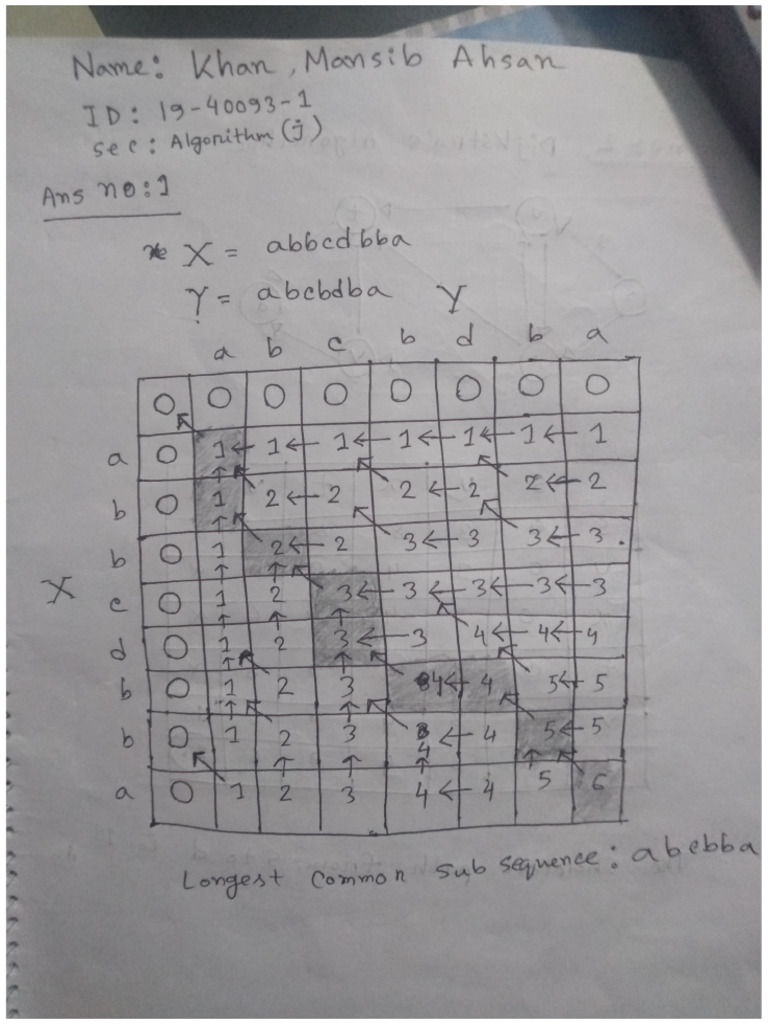 Name: Khan, Mansib Ahsan
ID: 19-40093-1
Sec: Algorithm (j)
Ans no: 1
X = abbcdbba
Y = abcbdba Y
a b c b d b a
0 0 0 0 0 0 0 0
a 0 1 ← 1 ← 1 ← 1 ← 1 ← 1 ← 1
b 0 1 2 ← 2 2 ← 2 2 ← 2
b 0 1 2 ← 2 3 ← 3 3 ← 3
X c 0 1 2 3 ← 3 ← 3 ← 3 ← 3
d 0 1 2 3 ← 3 4 ← 4 ← 4
b 0 1 2 3 4 ← 4 5 ← 5
b 0 1 2 3 4 ← 4 5 ← 5
a 0 1 2 3 4 ← 4 5 6
Longest common sub sequence: abcbba